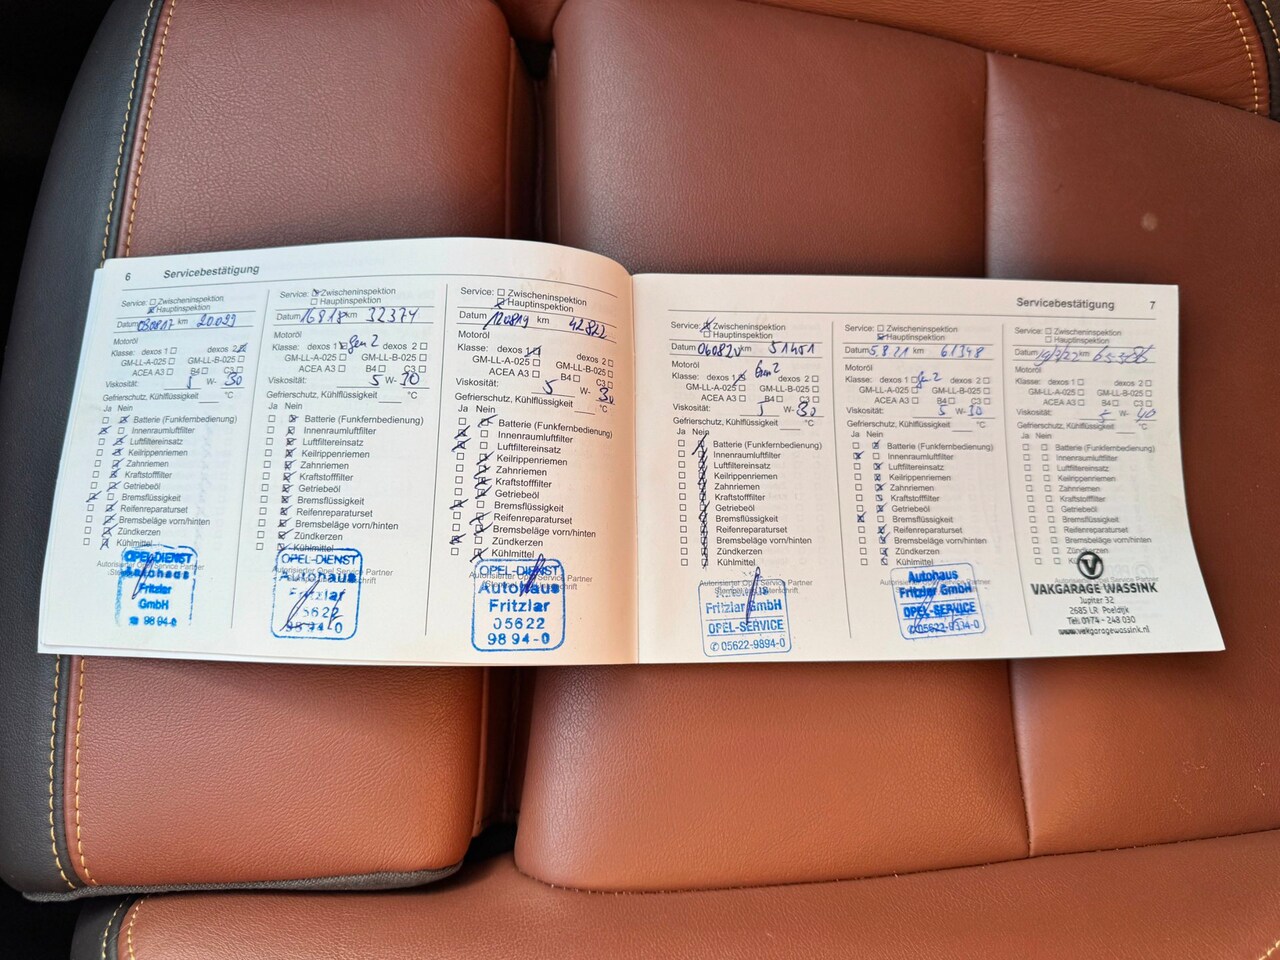 6 Servicebestätigung
Service: Zwischeninspektion
Hauptinspektion
Datum 030817 km 20099
Motoröl
Klasse: dexos 1 dexos 2
GM-LL-A-025 GM-LL-B-025
ACEA A3 B4 C3
Viskosität: 5 W- 30
Gefrierschutz, Kühlflüssigkeit °C
Ja Nein
Batterie (Funkfernbedienung)
Innenraumluftfilter
Luftfiltereinsatz
Keilrippenriemen
Zahnriemen
Kraftstofffilter
Getriebeöl
Bremsflüssigkeit
Reifenreparaturset
Bremsbeläge vorn/hinten
Zündkerzen
Kühlmittel
Autorisierter Opel Service Partner
OPEL-DIENST
Autohaus
Fritzlar
GmbH
☎ 98 94-0
Service: Zwischeninspektion
Hauptinspektion
Datum 16818 km 32374
Motoröl
Klasse: dexos 1 Gen 2 dexos 2
GM-LL-A-025 GM-LL-B-025
ACEA A3 B4 C3
Viskosität: 5 W- 30
Gefrierschutz, Kühlflüssigkeit °C
Ja Nein
Batterie (Funkfernbedienung)
Innenraumluftfilter
Luftfiltereinsatz
Keilrippenriemen
Zahnriemen
Kraftstofffilter
Getriebeöl
Bremsflüssigkeit
Reifenreparaturset
Bremsbeläge vorn/hinten
Zündkerzen
Kühlmittel
Autorisierter Opel Service Partner
OPEL-DIENST
Autohaus
Fritzlar
05622
98 94-0
Service: Zwischeninspektion
Hauptinspektion
Datum 120819 km 42822
Motoröl
Klasse: dexos 1 dexos 2
GM-LL-A-025 GM-LL-B-025
ACEA A3 B4 C3
Viskosität: 5 W- 30
Gefrierschutz, Kühlflüssigkeit °C
Ja Nein
Batterie (Funkfernbedienung)
Innenraumluftfilter
Luftfiltereinsatz
Keilrippenriemen
Zahnriemen
Kraftstofffilter
Getriebeöl
Bremsflüssigkeit
Reifenreparaturset
Bremsbeläge vorn/hinten
Zündkerzen
Kühlmittel
Autorisierter Opel Service Partner
OPEL-DIENST
Autohaus
Fritzlar
05622
98 94-0
Servicebestätigung 7
Service: Zwischeninspektion
Hauptinspektion
Datum 060820 km 51451
Motoröl
Gen 2
Klasse: dexos 1 dexos 2
GM-LL-A-025 GM-LL-B-025
ACEA A3 B4 C3
Viskosität: 5 W- 30
Gefrierschutz, Kühlflüssigkeit °C
Ja Nein
Batterie (Funkfernbedienung)
Innenraumluftfilter
Luftfiltereinsatz
Keilrippenriemen
Zahnriemen
Kraftstofffilter
Getriebeöl
Bremsflüssigkeit
Reifenreparaturset
Bremsbeläge vorn/hinten
Zündkerzen
Kühlmittel
Autorisierter Opel Service Partner
Autohaus
Fritzlar GmbH
OPEL-SERVICE
✆ 05622-9894-0
Service: Zwischeninspektion
Hauptinspektion
Datum 5.8.21 km 61348
Motoröl
Klasse: dexos 1 Gen 2 dexos 2
GM-LL-A-025 GM-LL-B-025
ACEA A3 B4 C3
Viskosität: 5 W- 30
Gefrierschutz, Kühlflüssigkeit °C
Ja Nein
Batterie (Funkfernbedienung)
Innenraumluftfilter
Luftfiltereinsatz
Keilrippenriemen
Zahnriemen
Kraftstofffilter
Getriebeöl
Bremsflüssigkeit
Reifenreparaturset
Bremsbeläge vorn/hinten
Zündkerzen
Kühlmittel
Autohaus
Fritzlar GmbH
OPEL-SERVICE
✆ 05622-9894-0
Service: Zwischeninspektion
Hauptinspektion
Datum km
Motoröl
Klasse: dexos 1 dexos 2
GM-LL-A-025 GM-LL-B-025
ACEA A3 B4 C3
Viskosität: 5 W- 40
Gefrierschutz, Kühlflüssigkeit °C
Ja Nein
Batterie (Funkfernbedienung)
Innenraumluftfilter
Luftfiltereinsatz
Keilrippenriemen
Zahnriemen
Kraftstofffilter
Getriebeöl
Bremsflüssigkeit
Reifenreparaturset
Bremsbeläge vorn/hinten
Zündkerzen
VAKGARAGE WASSINK
Jupiter 32
2685 LR Poeldijk
Tel: 0174 - 248 030
www.vakgaragewassink.nl